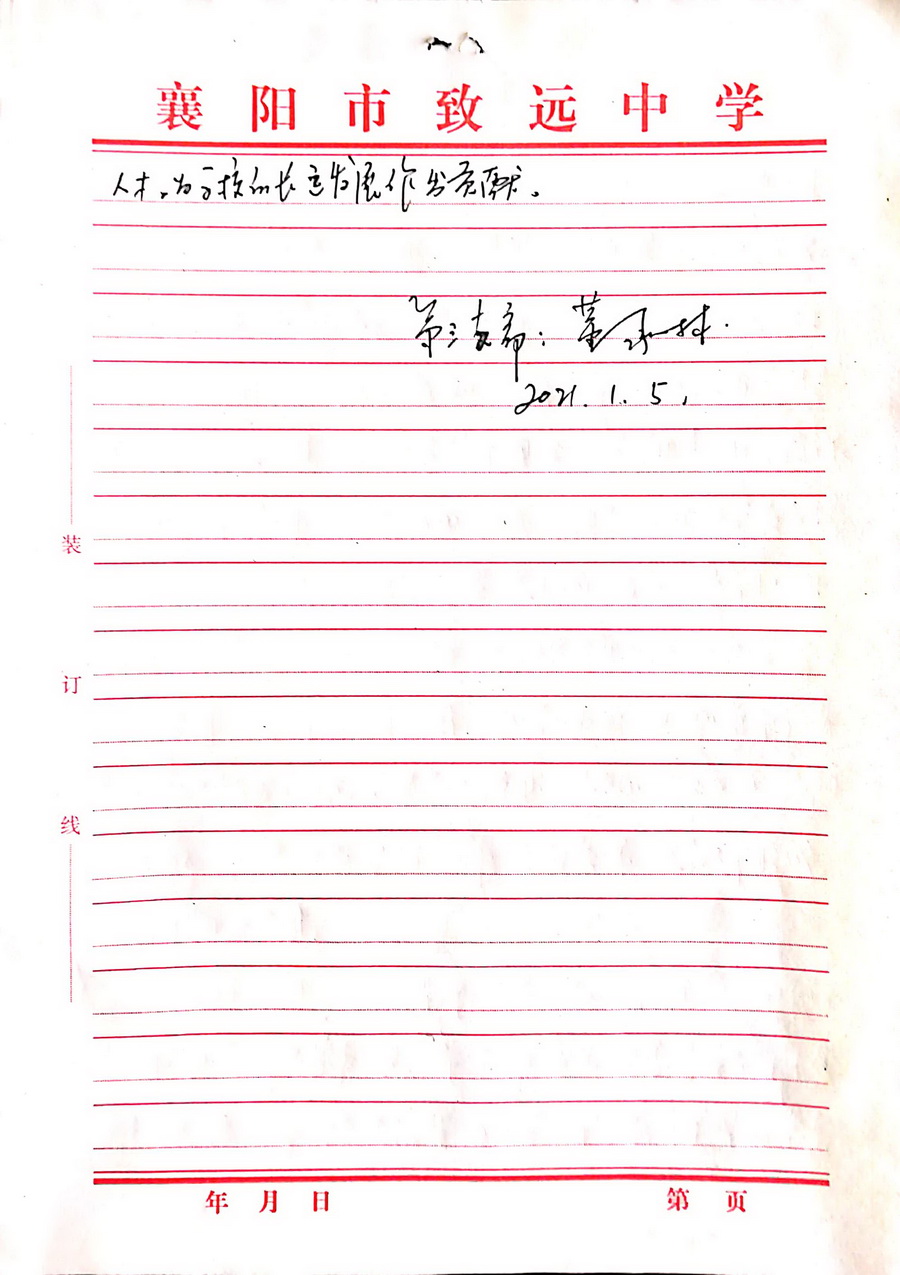 襄阳市致远中学
人才,为学校的长远发展作出贡献。
第三支部:董承林.
2021.1.5.
装
订
线
年 月 日
第 页